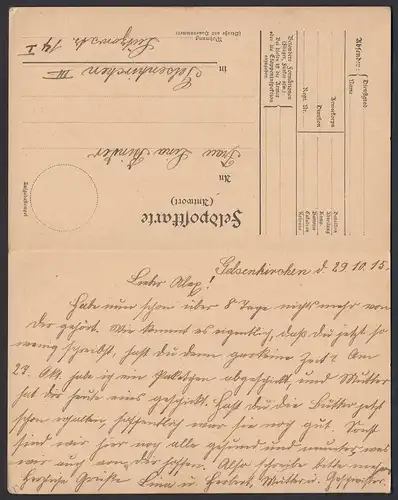 Absender:
Dienstgrad
Name
Armeekorps
Division
Regt. Nr.
Bataillon
Abteilung
Komp.
Batterie
Eskadron
Kolonne
Besondere Formationen
Feldpostkarte
(Antwort)
An
Frau Lina Binder
in Gelsenkirchen III
Wohnung
(Straße und Hausnummer)
Lützowstr. 14 I
Gelsenkirchen d. 29.10.15.
Lieber Alex!
Habe nun schon über 8 Tage nichts mehr von
dir gehört. Wie kommt es eigentlich, daß du jetzt so
wenig schreibst, hast du denn gar keine Zeit? Am
23. Okt. habe ich ein Paketchen abgeschickt, und Mutter
hat dir heute eins geschickt. Hast du die Butter jetzt
schon erhalten, hoffentlich war sie noch gut. Sonst
sind wir hier noch alle gesund und munter, was
wir auch von dir hoffen. Also schreibe bitte mehr
Herzliche Grüße Lina u. Herbert, Mutter u. Geschwister.